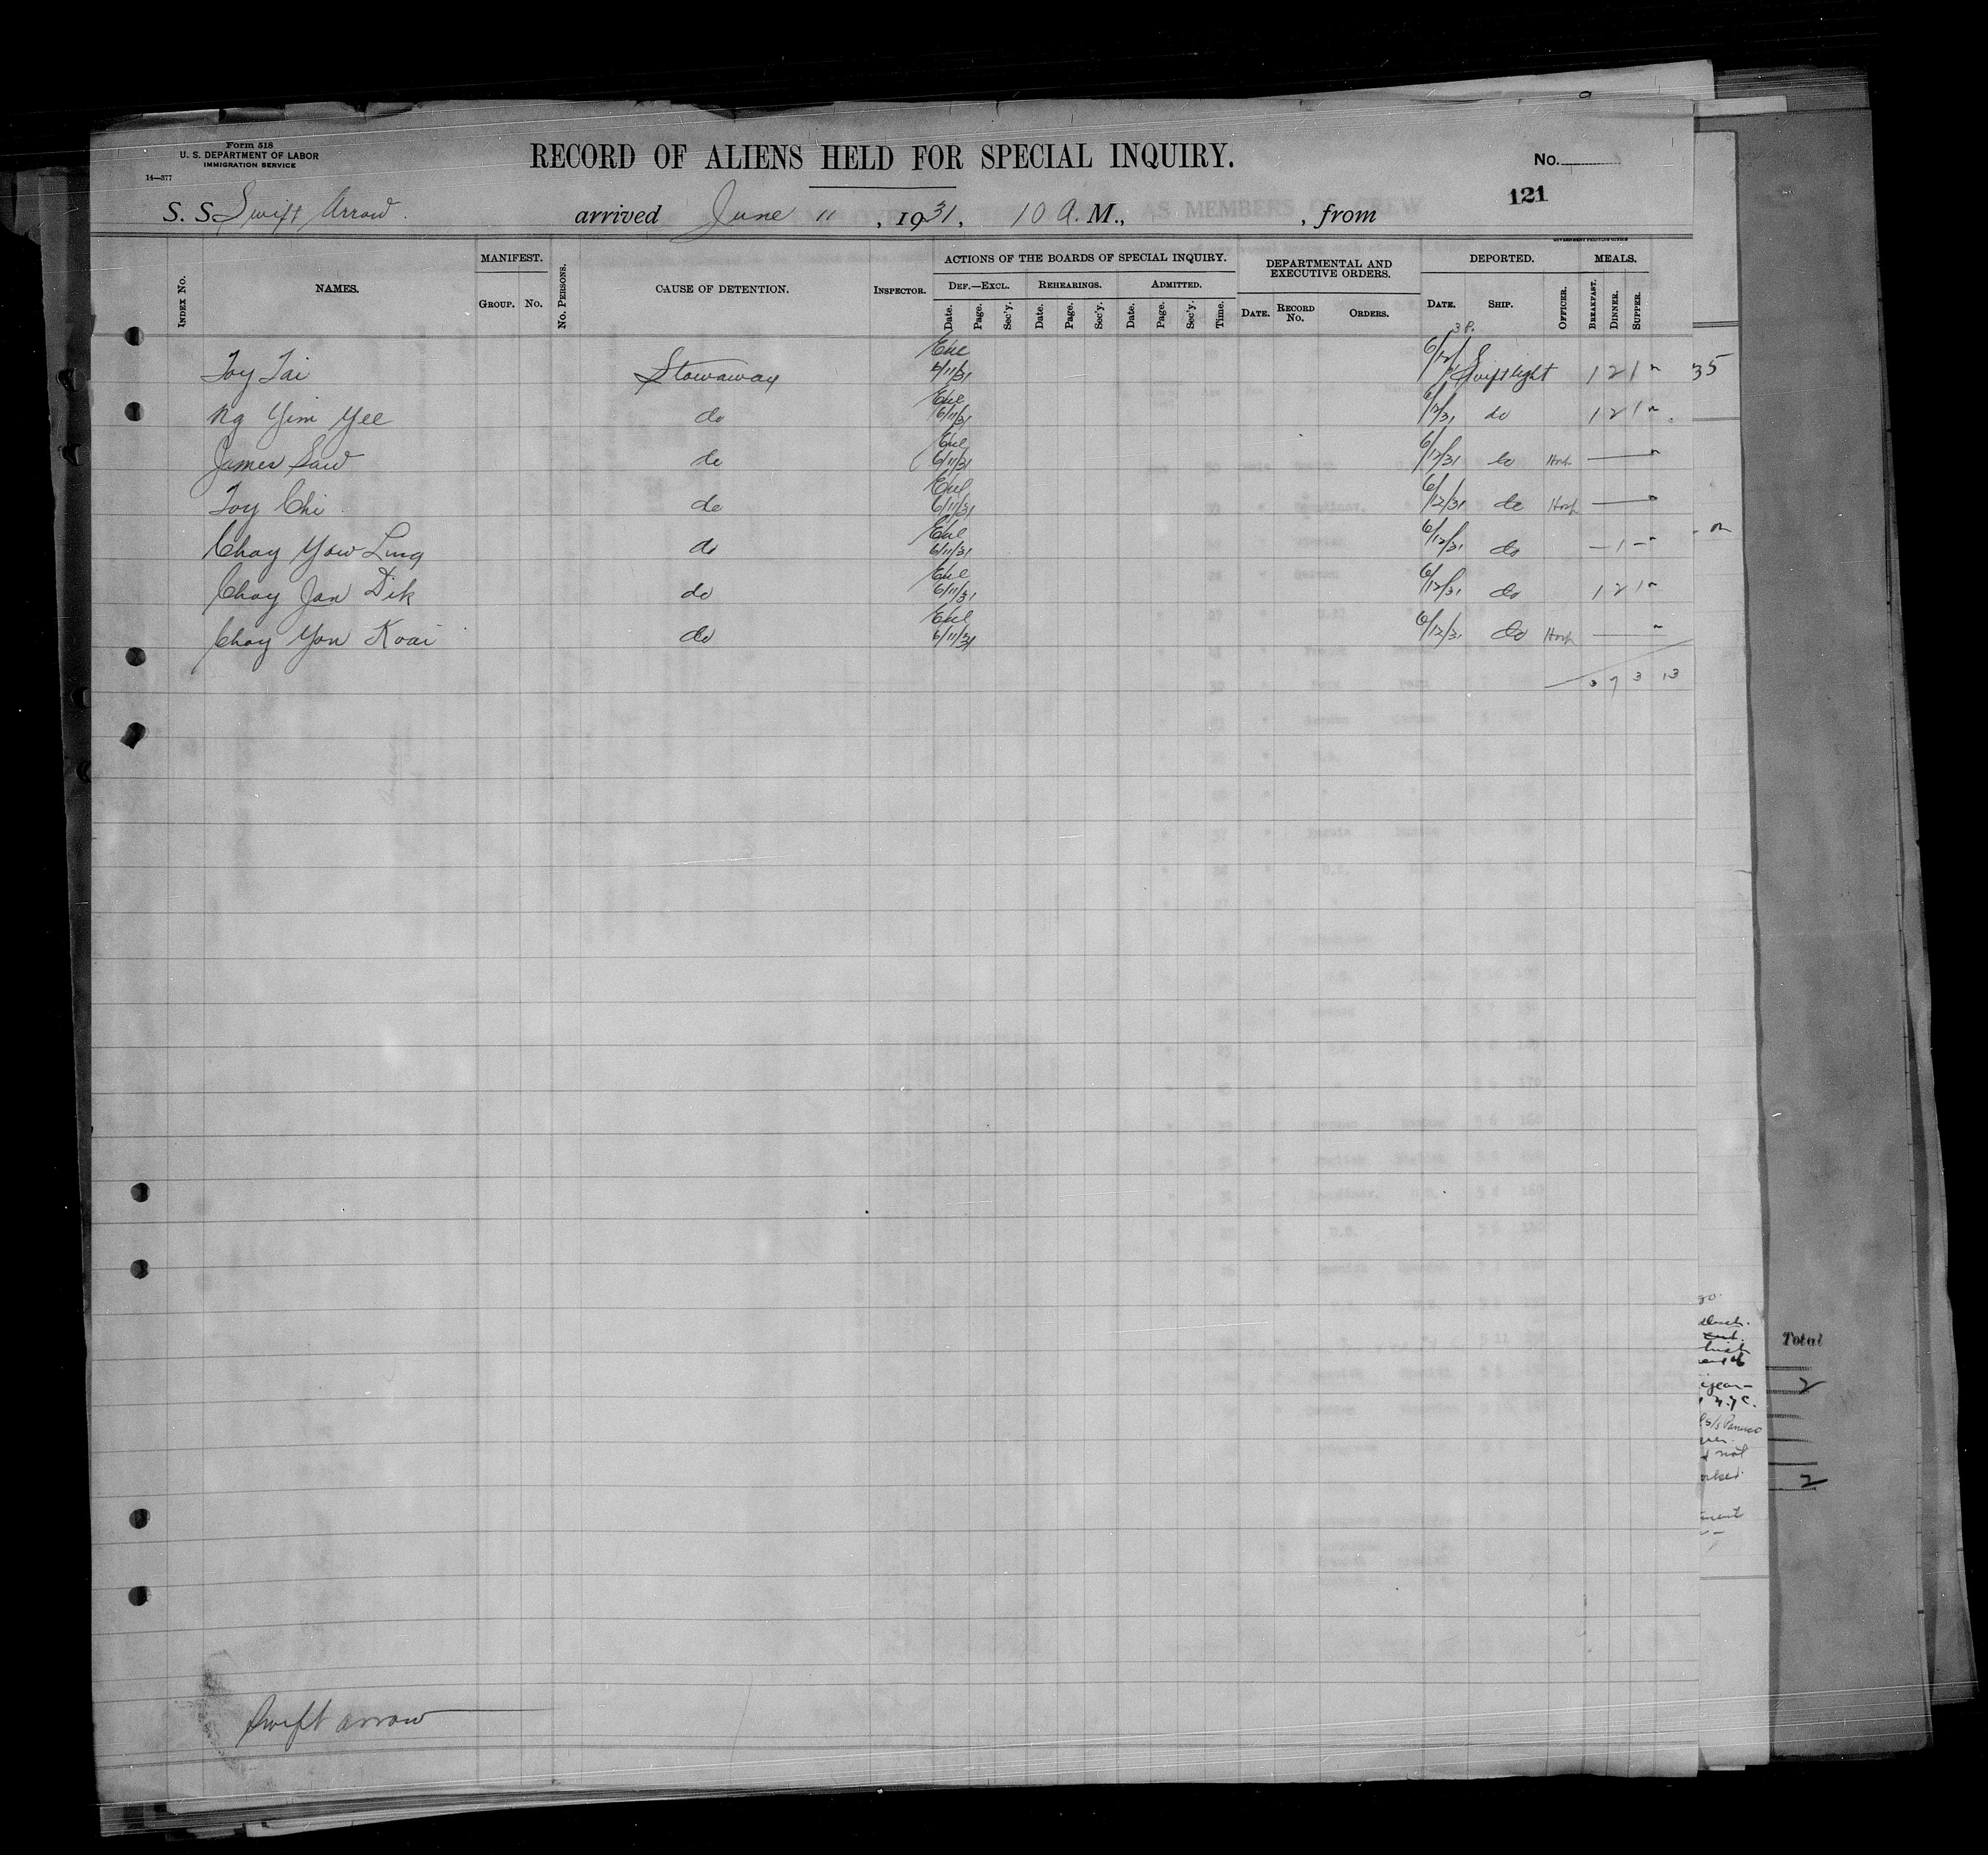 Form 518
U. S. DEPARTMENT OF LABOR
IMMIGRATION SERVICE
14—377
RECORD OF ALIENS HELD FOR SPECIAL INQUIRY.
No.
121
S. S. Swift Arrow arrived June 11, 1931, 10 A. M., , from
INDEX NO. NAMES. MANIFEST. GROUP. NO. NO. PERSONS. CAUSE OF DETENTION. INSPECTOR. ACTIONS OF THE BOARDS OF SPECIAL INQUIRY. DEF.—EXCL. Date. Page. Sec'y. REHEARINGS. Date. Page. Sec'y. ADMITTED. Date. Page. Sec'y. Time. DEPARTMENTAL AND EXECUTIVE ORDERS. DATE. RECORD NO. ORDERS. DEPORTED. DATE. SHIP. OFFICER. MEALS. BREAKFAST. DINNER. SUPPER.
3 P.
Toy Tai Stowaway Excl 6/11/31 6/12/31 Swiftlight 1 2 1
35
Ng Yim Yee do Excl 6/11/31 6/12/31 do 1 2 1
James Saw do Excl 6/11/31 6/12/31 do Hosp —
Toy Chi do Excl 6/11/31 6/12/31 do Hosp —
Choy Yow Ling do Excl 6/11/31 6/12/31 do — 1 —
Choy Jan Dik do Excl 6/11/31 6/12/31 do 1 2 1
Choy Yon Koai do Excl 6/11/31 6/12/31 do Hosp —
3 7 3 13
Total
2
N.Y.C.
s/s Panuco
not
2
Swift arrow